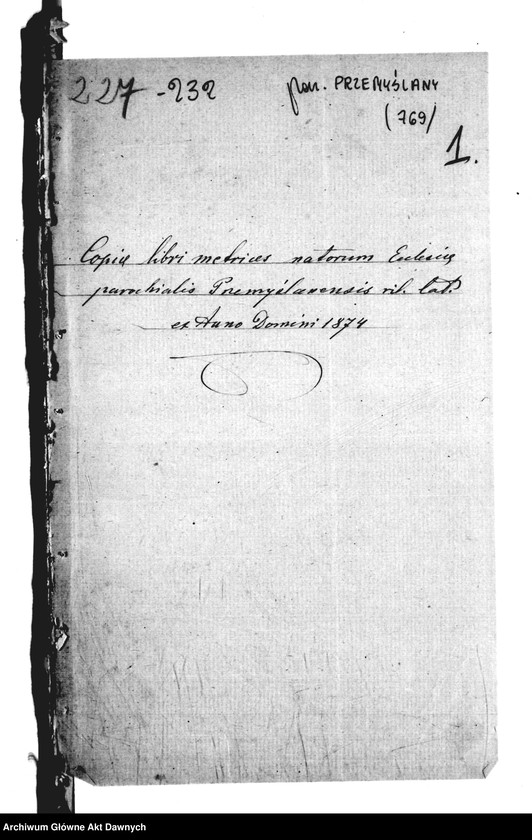 227-232
par. PRZEMYŚLANY
(769)
1.
Copia libri metrices natorum Eclesia
parochialis Premyślanensis rit. lat.
ex Anno Domini 1874
Archiwum Główne Akt Dawnych